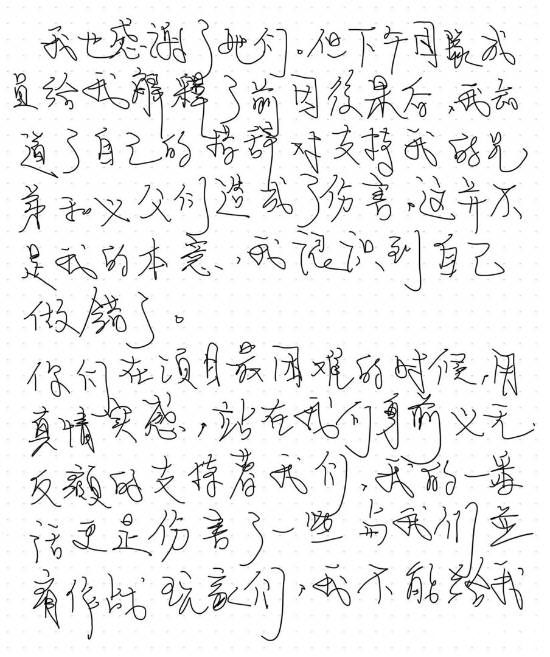 我也感谢了她们。但下午团队成
员给我解释了前因後果后,我知
道了自己的措辞对支持我的兄
弟和义父们造成了伤害,这并不
是我的本意,我认识到自己
做错了。
你们在项目最困难的时候,用
真情实感,站在我们身前义无
反顾的支持着我们,我的一番
话更是伤害了一些与我们并
肩作战玩家们,我不能给我